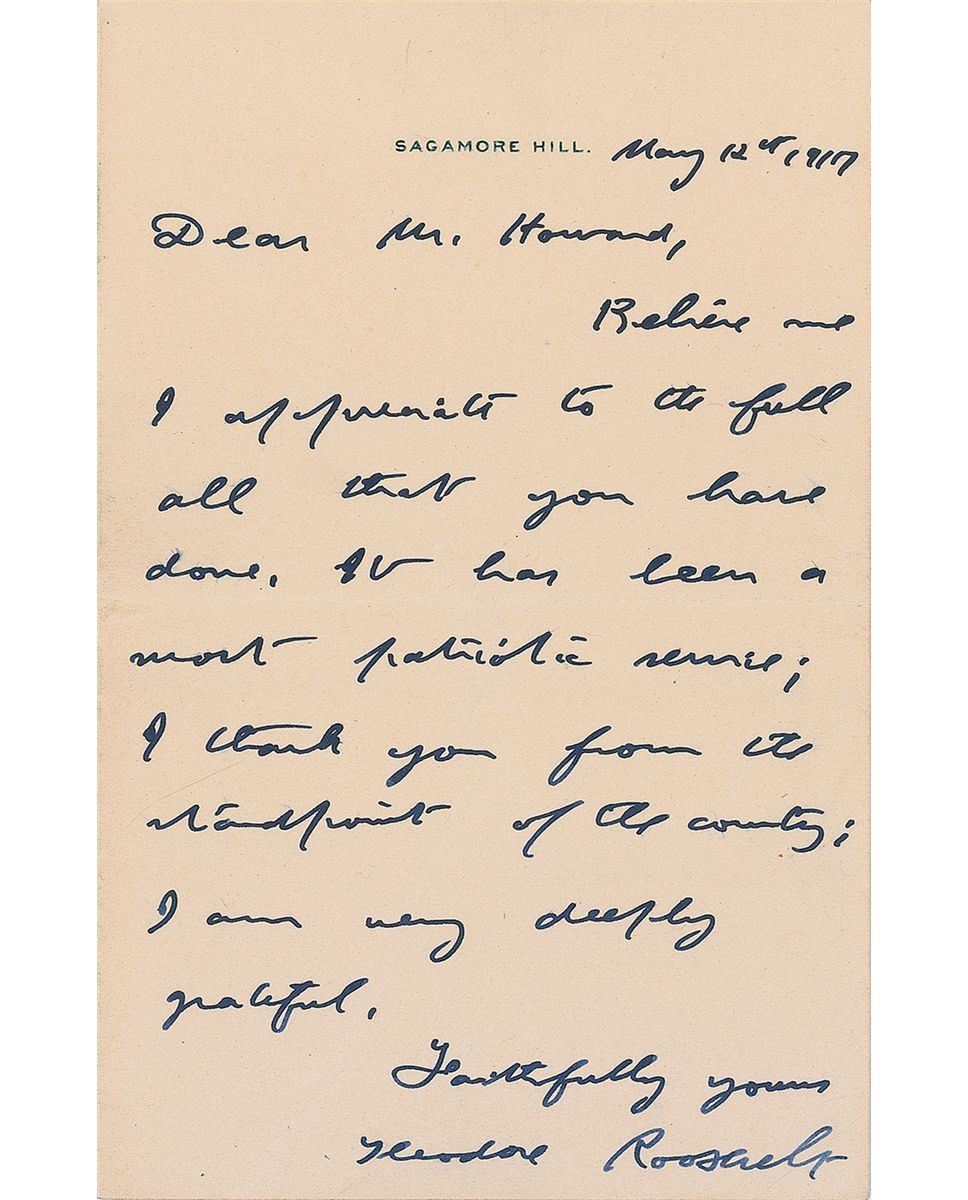 SAGAMORE HILL. May 12th 1917
Dear Mr. Howard,
Believe me
I appreciate to the full
all that you have
done. It has been a
most patriotic service;
I thank you from the
standpoint of the country;
I am very deeply
grateful.
Faithfully yours
Theodore Roosevelt